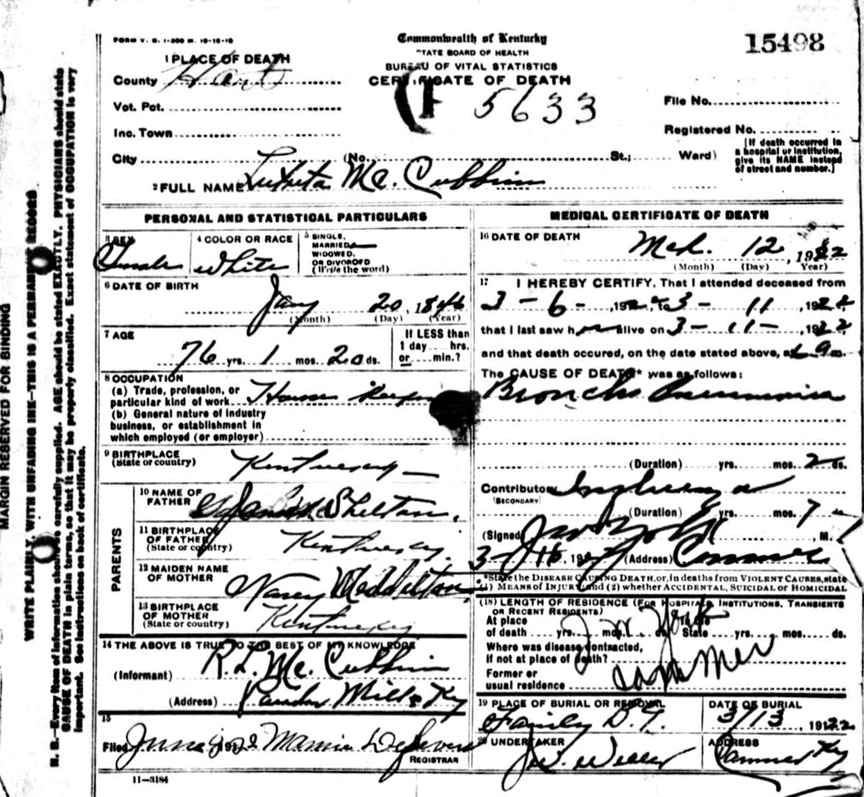 FORM V. S. 1-200 M. 10-16-19
Commonwealth of Kentucky
STATE BOARD OF HEALTH
BUREAU OF VITAL STATISTICS
CERTIFICATE OF DEATH
15498
1 PLACE OF DEATH
County Hart
5633
Vot. Pct.
File No.
Inc. Town
Registered No.
City (No. St.; Ward)
[If death occurred in a hospital or institution, give its NAME instead of street and number.]
2 FULL NAME Mc. Cubbin
PERSONAL AND STATISTICAL PARTICULARS
3 SEX Female
4 COLOR OR RACE White
5 SINGLE, MARRIED, WIDOWED, OR DIVORCED (Write the word)
6 DATE OF BIRTH
Jany 20, 1846
(Month) (Day) (Year)
7 AGE
76 yrs. 1 mos. 20 ds.
If LESS than 1 day... hrs. or... min.?
8 OCCUPATION
(a) Trade, profession, or particular kind of work House Keeper
(b) General nature of industry business, or establishment in which employed (or employer)
9 BIRTHPLACE
(State or country) Kentucky
PARENTS
10 NAME OF FATHER Shelton
11 BIRTHPLACE OF FATHER
(State or country) Kentucky
12 MAIDEN NAME OF MOTHER Nancy
13 BIRTHPLACE OF MOTHER
(State or country) Kentucky
14 THE ABOVE IS TRUE TO THE BEST OF MY KNOWLEDGE
(Informant) R. L. Mc. Cubbin
(Address) Mills Ky
15
Filed June
REGISTRAR
11-3184
MEDICAL CERTIFICATE OF DEATH
16 DATE OF DEATH
Mch. 12, 1922
(Month) (Day) Year)
17 I HEREBY CERTIFY, That I attended deceased from
3-6-, 192 to 3-11 , 1922
that I last saw her alive on 3-11-, 1922
and that death occured, on the date stated above, at
The CAUSE OF DEATH* was as follows:
Broncho Pneumonia
(Duration) yrs. mos. 2 ds.
Contributory Influenza
(SECONDARY)
(Duration) yrs. mos. 7
(Signed) M.
3-16, 192 (Address) Canmer
*State the DISEASE CAUSING DEATH, or, in deaths from VIOLENT CAUSES, state
(1) MEANS OF INJURY; and (2) whether ACCIDENTAL, SUICIDAL OR HOMICIDAL
(18) LENGTH OF RESIDENCE (FOR HOSPITALS INSTITUTIONS, TRANSIENTS OR RECENT RESIDENTS)
At place of death yrs. mos. ds. State yrs. mos. ds.
Where was disease contracted, if not at place of death?
Former or usual residence Canmer
19 PLACE OF BURIAL OR REMOVAL
DATE OF BURIAL
Family 3/13 1922
20 UNDERTAKER
ADDRESS
J.W. Canmer Ky
MARGIN RESERVED FOR BINDING
WRITE PLAINLY, WITH UNFADING INK—THIS IS A PERMANENT RECORD
N. B.—Every item of information should be carefully supplied. AGE should be stated EXACTLY. PHYSICIANS should state
CAUSE OF DEATH in plain terms, so that it may be properly classified. Exact statement of OCCUPATION is very
important. See instructions on back of certificate.